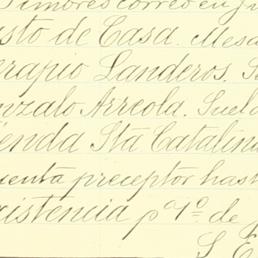 Timbres correo en
sto de Casa. Mesa
erapio Landeros. S
onzalo Arreola. Suel
ienda Sta Catalin
uenta preceptor has
xistencia p 1º de